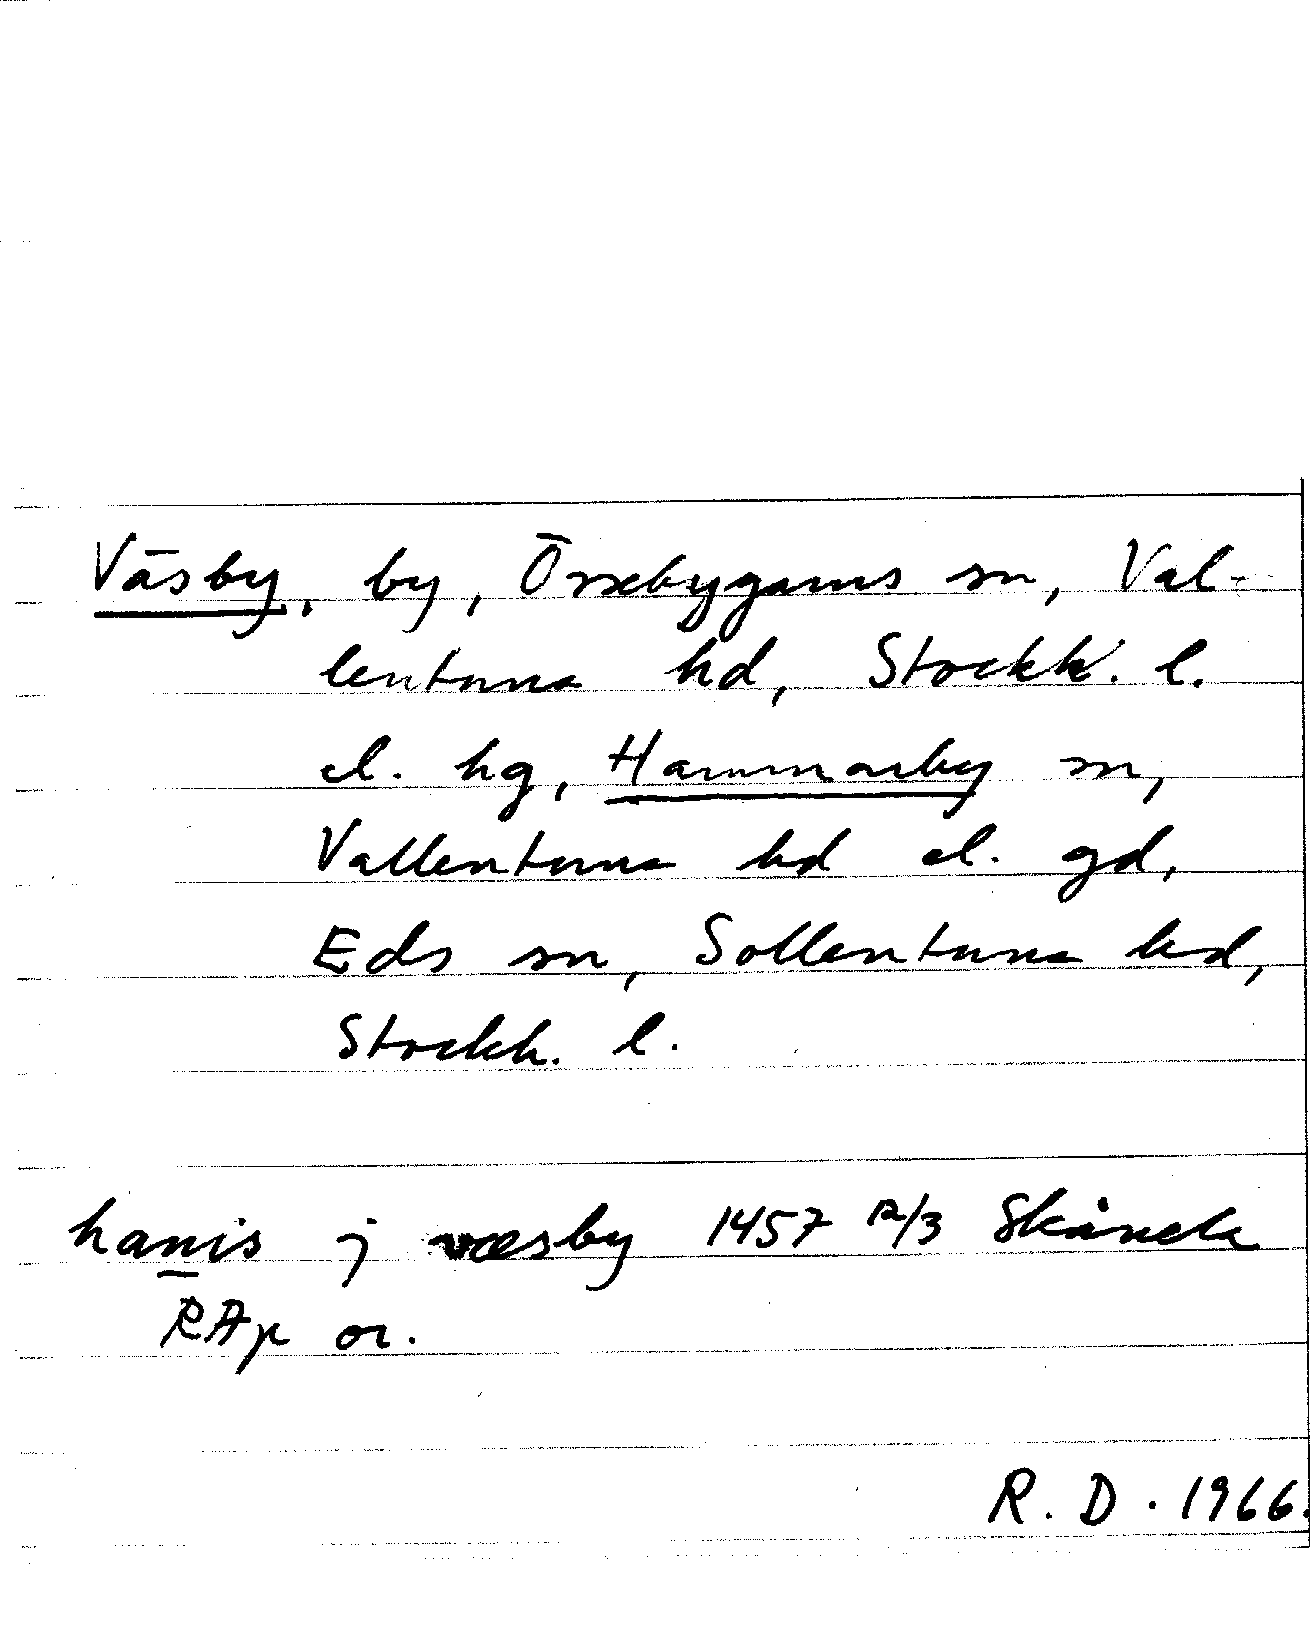 Väsby, by, Össebygarns sn, Val-
lentuna hd, Stockh. l.
el. hg, Hammarby sn,
Vallentuna hd el. gd,
Eds sn, Sollentuna hd,
Stockh. l.
hanis j væsby 1457 12/3 Skånela
RAp or.
R. D. 1966.